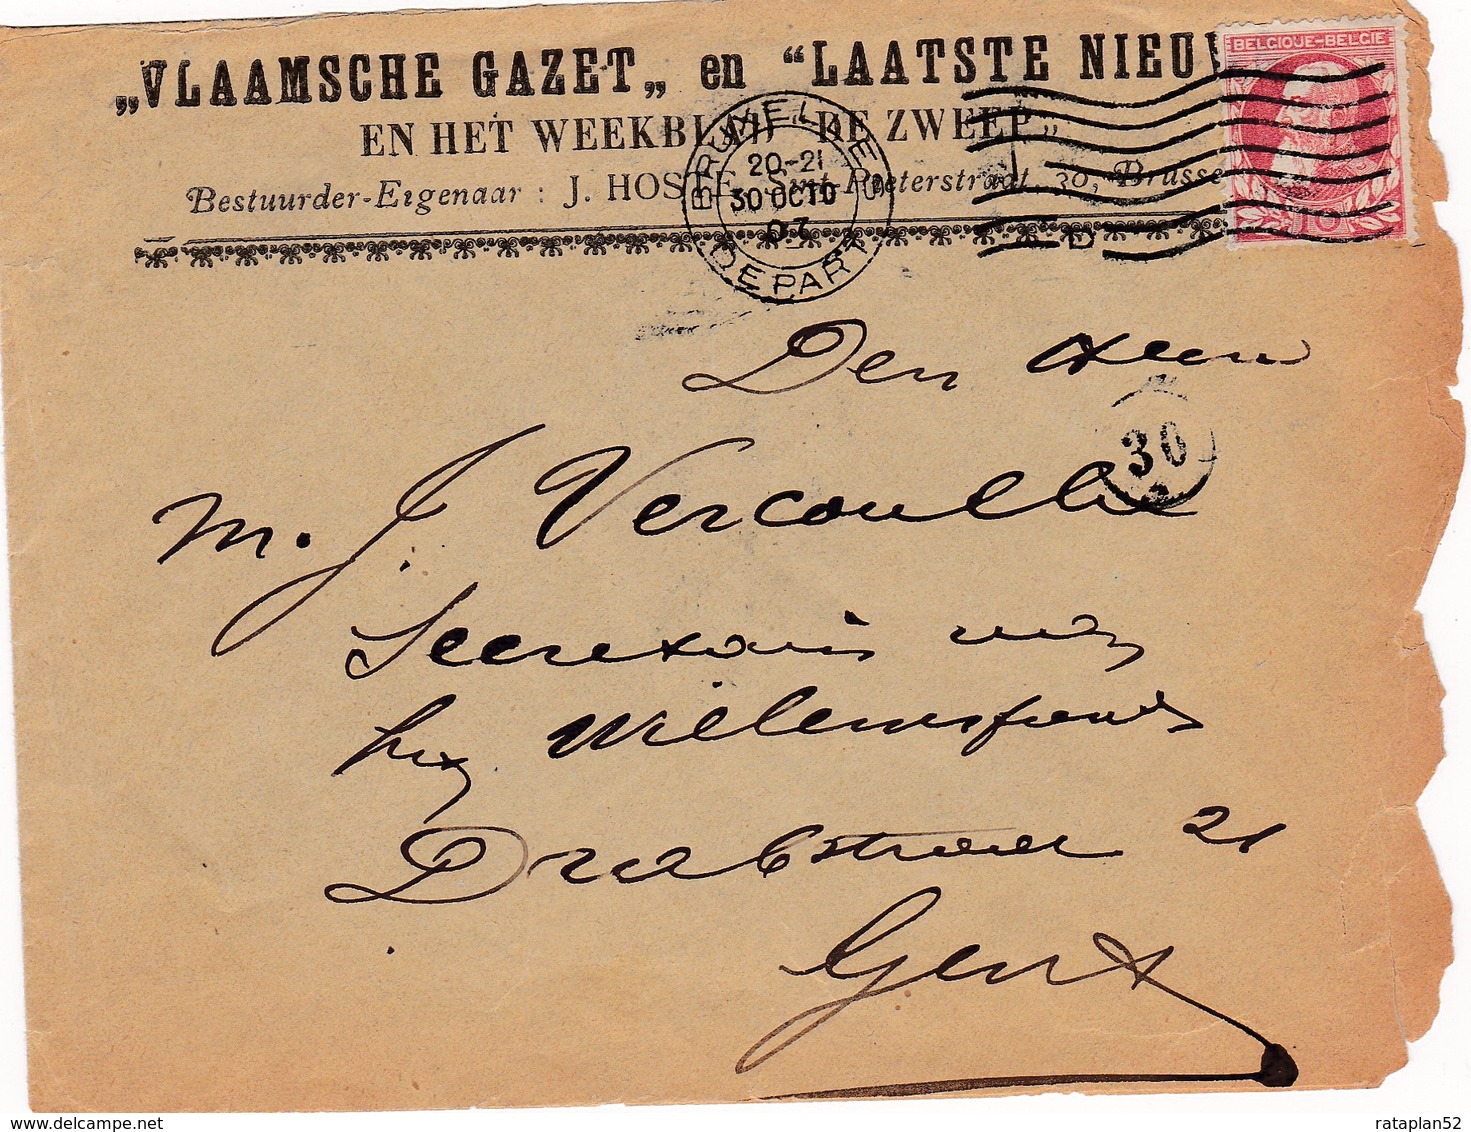 „VLAAMSCHE GAZET„ en “LAATSTE NIEU
EN HET WEEKBLAD “DE ZWEEP„
Bestuurder-Eigenaar : J. HOSTE, Sint-Pieterstraat, 30, Brusse
BELGIQUE-BELGIE
BRUXELLES
20-21
30 OCTO
07
DEPART
Den Heer
30
M. J. Vercoullie
Secretaris van
het Willemsfonds
Drabstraat 21
Gent
rataplan52